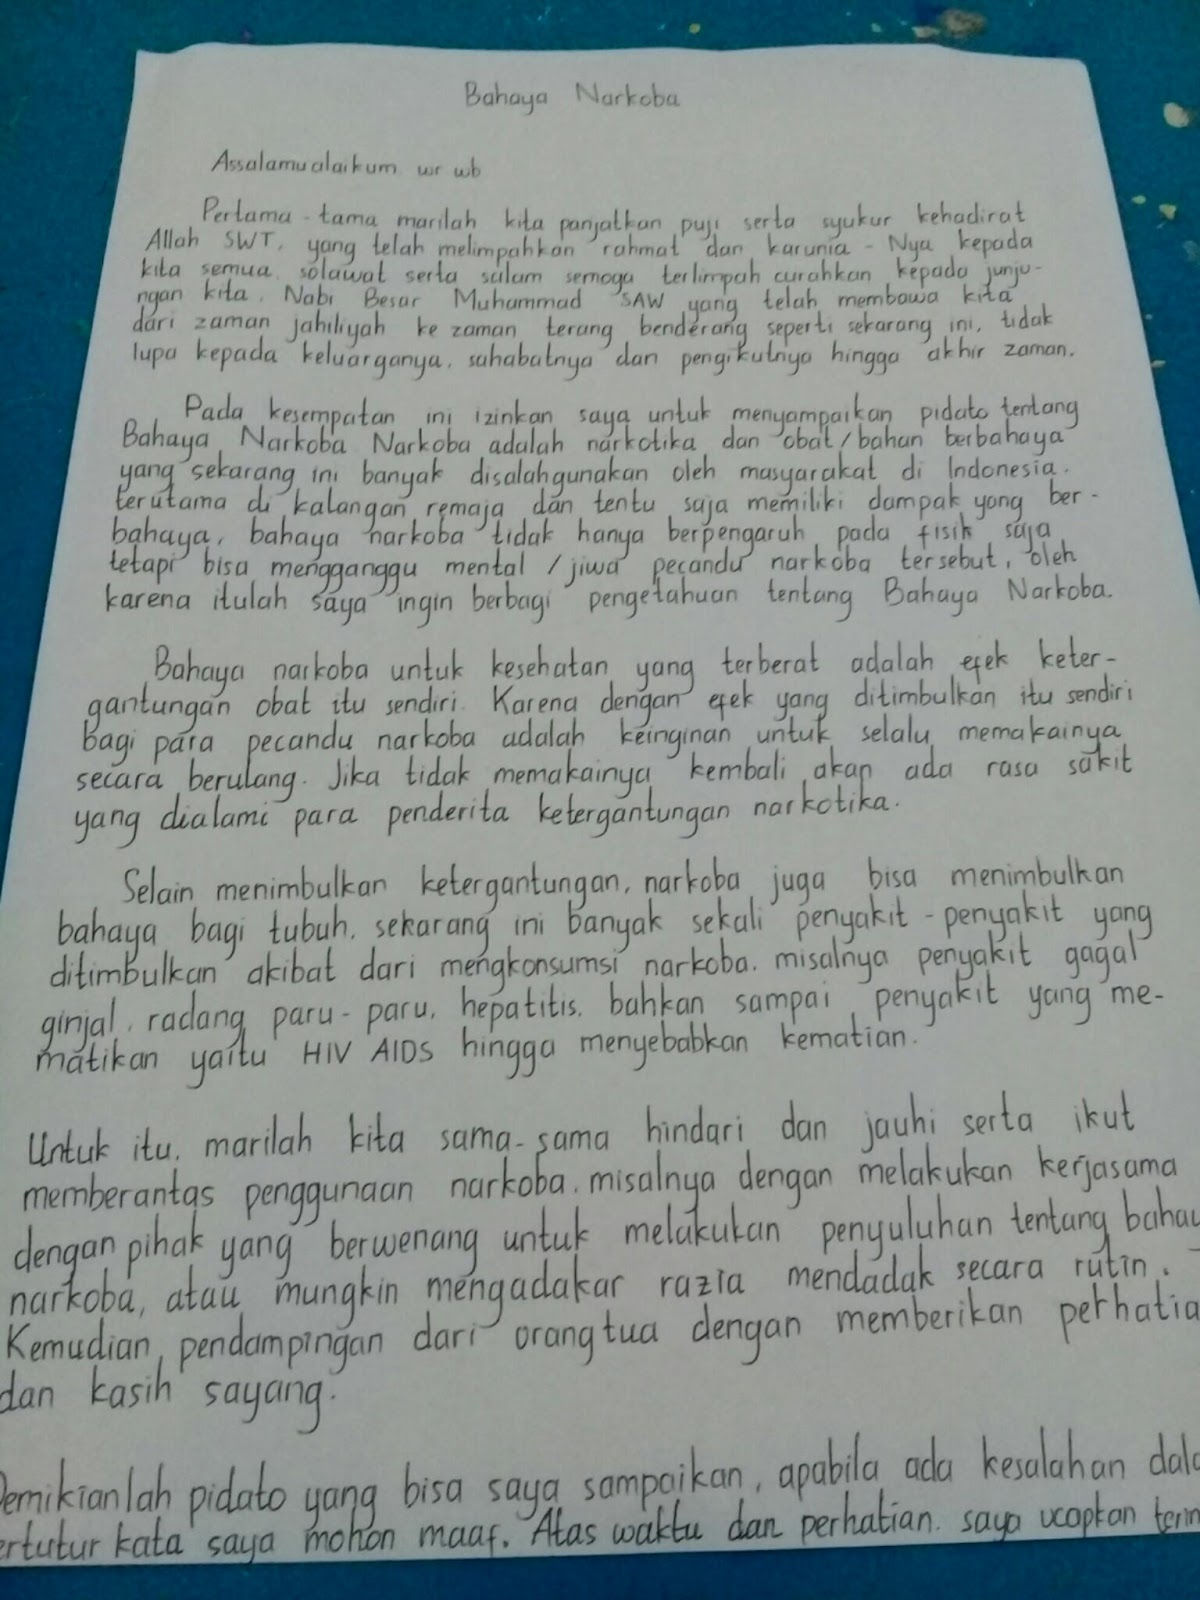 Bahaya Narkoba
Assalamualaikum wr wb
Pertama - tama marilah kita panjatkan puji serta syukur kehadirat
Allah SWT, yang telah melimpahkan rahmat dan karunia - Nya kepada
kita semua. solawat serta salam semoga terlimpah curahkan kepada junju-
ngan kita, Nabi Besar Muhammad SAW yang telah membawa kita
dari zaman jahiliyah ke zaman terang benderang seperti sekarang ini, tidak
lupa kepada keluarganya, sahabatnya dan pengikutnya hingga akhir zaman.
Pada kesempatan ini izinkan saya untuk menyampaikan pidato tentang
Bahaya Narkoba Narkoba adalah narkotika dan obat/bahan berbahaya
yang sekarang ini banyak disalahgunakan oleh masyarakat di Indonesia.
terutama di kalangan remaja dan tentu saja memiliki dampak yang ber-
bahaya, bahaya narkoba tidak hanya berpengaruh pada fisik saja
tetapi bisa mengganggu mental /jiwa pecandu narkoba tersebut, oleh
karena itulah saya ingin berbagi pengetahuan tentang Bahaya Narkoba.
Bahaya narkoba untuk kesehatan yang terberat adalah efek keter-
gantungan obat itu sendiri. Karena dengan efek yang ditimbulkan itu sendiri
bagi para pecandu narkoba adalah keinginan untuk selalu memakainya
secara berulang. Jika tidak memakainya kembali akan ada rasa sakit
yang dialami para penderita ketergantungan narkotika.
Selain menimbulkan ketergantungan, narkoba juga bisa menimbulkan
bahaya bagi tubuh. sekarang ini banyak sekali penyakit - penyakit yang
ditimbulkan akibat dari mengkonsumsi narkoba. misalnya penyakit gagal
ginjal, radang paru - paru, hepatitis, bahkan sampai penyakit yang me-
matikan yaitu HIV AIDS hingga menyebabkan kematian.
Untuk itu, marilah kita sama-sama hindari dan jauhi serta ikut
memberantas penggunaan narkoba. misalnya dengan melakukan kerjasama
dengan pihak yang berwenang untuk melakukan penyuluhan tentang bahay
narkoba, atau mungkin mengadakar razia mendadak secara rutin.
Kemudian pendampingan dari orangtua dengan memberikan perhatia
dan kasih sayang.
Demikianlah pidato yang bisa saya sampaikan, apabila ada kesalahan dala
ertutur kata saya mohon maaf. Atas waktu dan perhatian. saya ucapkan terim